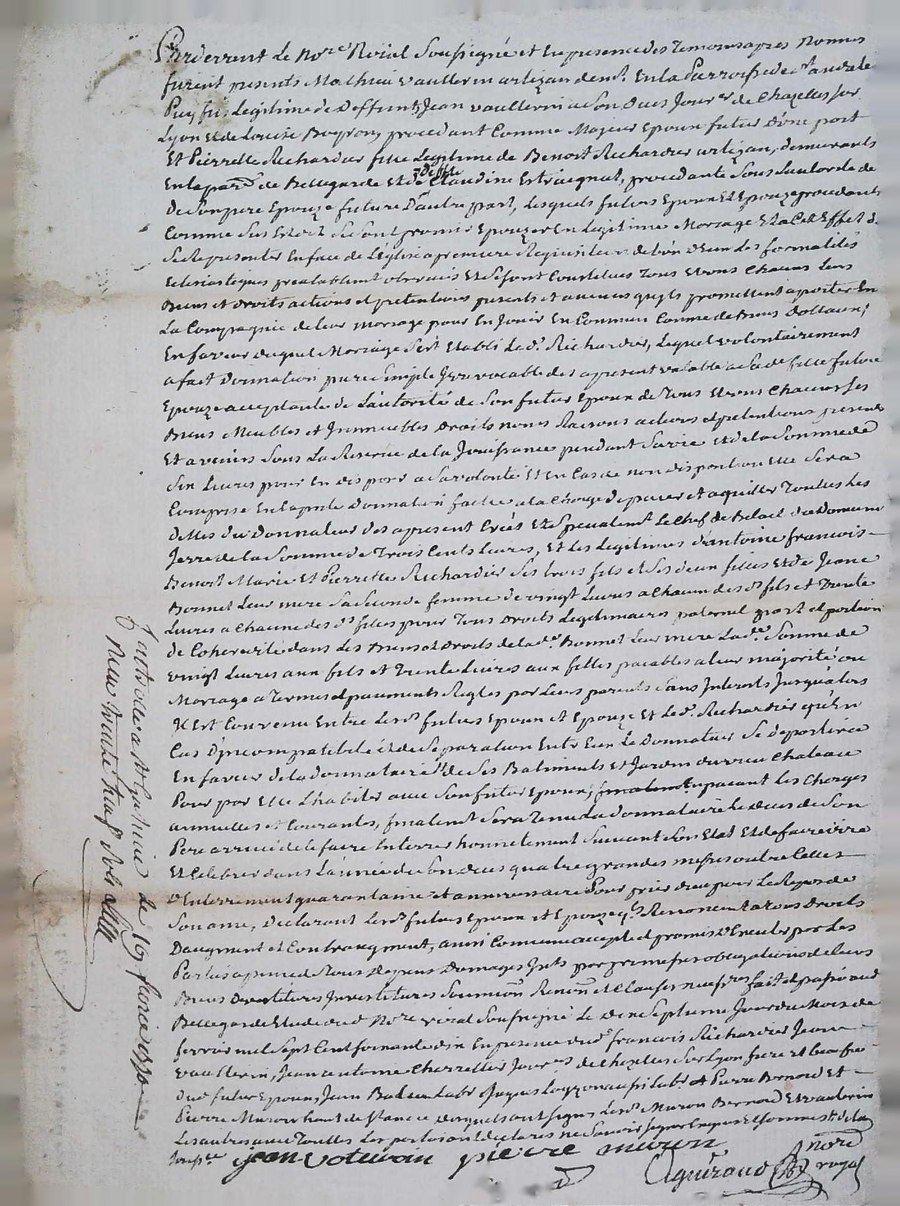 Pardevant Le No.re Roial Soussigné et En presence des Temoins apres Nommés
furent presents Mathieu vaullerin artizan dem.t En la Parroisse de S.t andré le
Puy fils Legitime de Deffunts Jean vaullerin a Son vivant Jour.er de Chazelles sur
Lyon Et de Louise procedant Comme Majeur Epoux futur d'une part
Et Pierrette Richardier fille Legitime de Benoit Richardier artizan, demeurants
En la par.sse de Bellegarde Et de deffte Claudine Estraignat, procedante Sous L'autorité de
De Son pere Epouze future D'autre part, Lesquels futurs Epoux Et Epouze procedants
Comme Sus Est ont promis Epouzer En Legitime Mariage Et a Cet Effet de
Se Representer En face de L'Eglise a premiere Requisition de L'un d'Eux Les formalités
Eclesiastiques prealablement observées Et Se sont Constitués Tous Et uns Chacuns Leurs
Biens et Droits actions et pretentions presents et avenirs qu'ils promettent aporter En
La Compagnie de leur mariage pour En Jouir En Commun Comme de Biens Dottaux;
En faveur duquel Mariage S'est Etabli Le d.t Richardier, Lequel volontairement
a fait Donnation pure Simple Irrevocable des a present valable a Sa d.e fille future
Epouze acceptante de L'autorité de Son futur Epoux de Tous Et uns Chacuns Ses
Biens Meubles et Immeubles Droits noms Raisons actions et pretentions presents
Et avenirs Sous La Reserve de la Jouissance pendant Sa vie et de la Somme de
Six Livres pour En disposer a Sa volonté Et En Cas de non disposition Elle Sera
Comprise En La p.nte Donnation faitte a la Charge de paier et aquitter Toutes Les
dettes du Donnateur des a present Créés Et Specialem.t Le Chef de Belael du Domaine
Jerre de la Somme de Trois Cents Livres, Et Les Legitimes d'antoine francois
Benoit Marie Et Pierrette Richardier Ses trois fils et Ses deux filles Et de Jeane
Bonnet Leur mere Sa Seconde femme de vingt Livres a Chacun des d.s fils et Trente
Livres a Chacune des d.s filles pour Tous Droits Legitimaires paternel part et portion
de Coheredité dans Les Biens et Droits de la d.e Bonnet Leur mere La d.e Somme de
vingt Livres aux fils et Trente Livres aux filles paiables a leur majorité ou
Mariage a Termes et paiements Regles par Leurs parents Sans Interets Jusqu'alors
Il Est Convenu Entre Les d.s futurs Epoux et Epouze Et Le d.t Richardier qu'En
Cas D'incompatibilité et de Separation Entr Eux Le Donnateur Se departira
En faveur de la donnataire de Ses Batiments Et Jardin du vieux Chateau
Pour par Elle L'habiter avec Son futur Epoux; En paiant Les Charges
annuelles et Courantes, Sera Tenue La donnataire Le deces de Son
Pere arrivé de le faire Enterrer honnettement Suivant Son Etat Et de faire dire
Et Celebrer dans L'année de Son deces quatre grandes messes outre Celles
d'Enterrement quarantaine et anniversaire Pour prier dieu pour Le Repos de
Son ame, Declarant Les d.s futurs Epoux et Epouze q.ls Renoncent a tous Droits
D'augment et Contreaugment, ainsi Convenu accepté et promis D'Executer par Les
Parties a peine de Tous Depens Domages Int.ts par
Biens Devetitures Investitures Soumiōn Renōn et Clauses fait et passé aud
Bellegarde Etude dud Nore roial Soussigné Le dix Septieme Jour du Mois de
fevrier mil Sept Cent Soixante dix En presence du d.t francois Richardier Jean
vaullerin, Jean antoine Charretier Jour.rs de Chazelles Sur Lyon frere et beau frere
Dud futur Epoux, Jean Labr Jaques aussi Labr et Pierre Bernard Et
Pierre Muron Lesquels ont Signé Les d.s Muron Bernard Et vaulerin
Les autres avec Toutes Les parties ont declarés ne Savoir Signer Enquis Et Sommés
Soussig.ne jean voteuvoin pieivre muron
Aguiraud nore royal
Jnst.
neuf